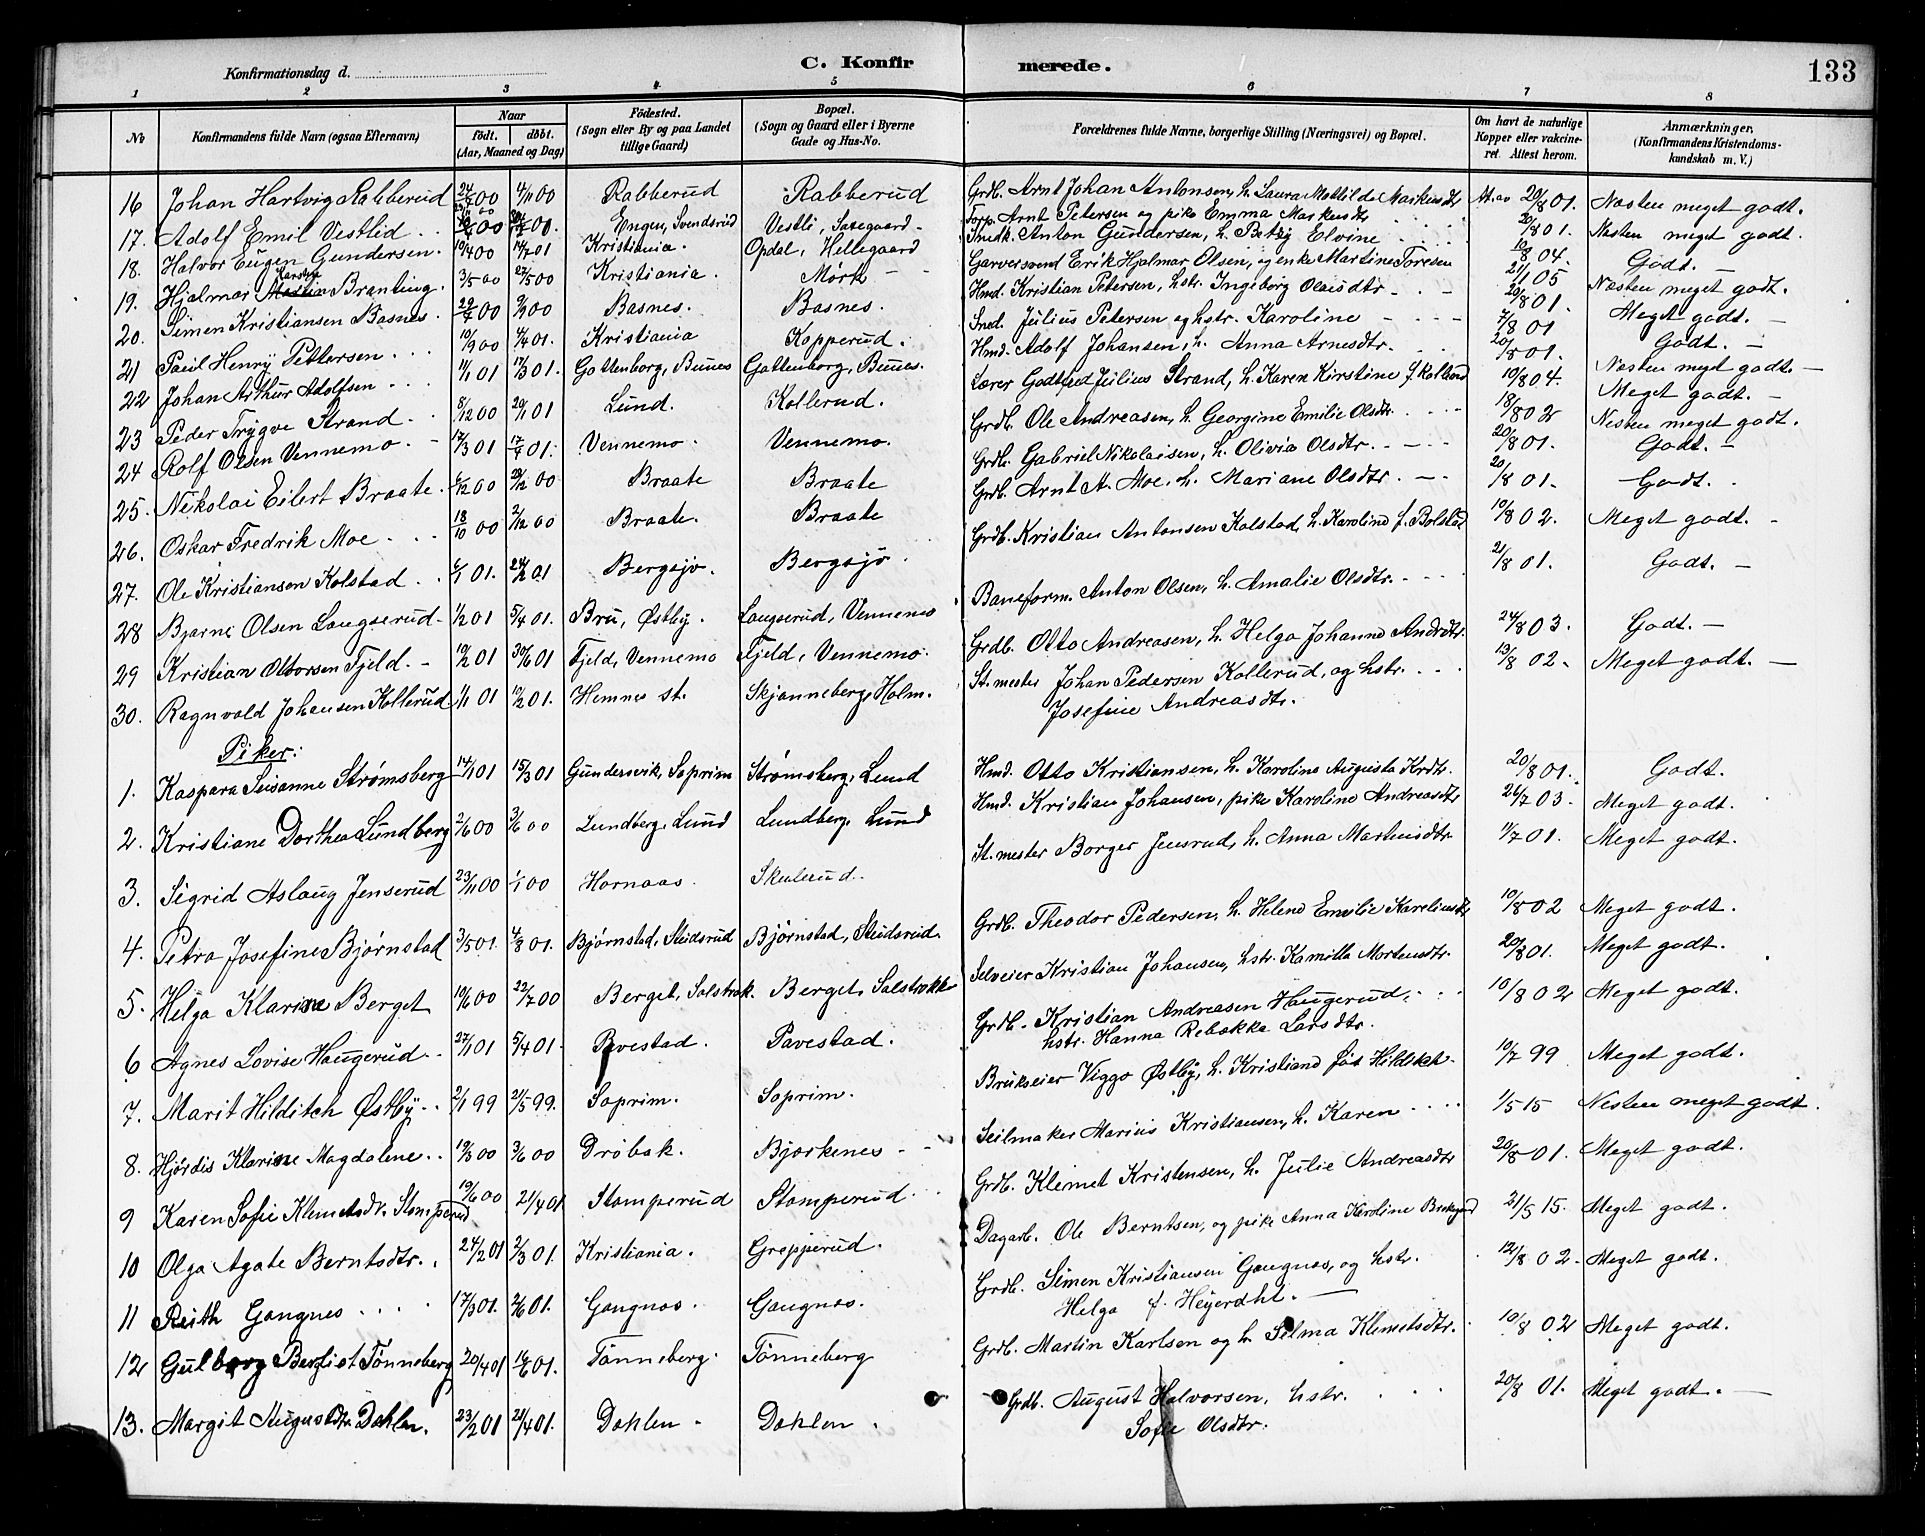 C. Konfirmerede.
133
Konfirmationsdag d.
1 2 3 4. 5 6 7 8
№
Konfirmandens fulde Navn (ogsaa Efternavn)
Naar
födt. döbt.
(Aar, Maaned og Dag)
Födested.
(Sogn eller By og paa Landet
tillige Gaard)
Bopæl.
(Sogn og Gaard eller i Byerne
Gade og Hus-No.
Forældrenes fulde Navne, borgerlige Stilling (Næringsvei) og Bopæl.
Om havt de naturlige
Kopper eller vakcine-
ret. Attest herom.
Anmærkninger.
(Konfirmandens Kristendoms-
kundskab m. V.)
16 Johan Hartvig Rabberud 4/11 00 Rabberud Rabberud Grdb. Arnt Johan Antonsen, h. Laura Mathilde Markusdtr 20/8 01. Næsten meget godt.
17. Adolf Emil Vestlid Engen, Svendsrud Vestli, Arnt Petersen og pike Emma 20/8 01. Næsten meget godt.
18. Halvor Eugen Gundersen. 10/4 00 14/7 01 Kristiania. Opdal, Hellegaard Smedk. Anton Gundersen, h. Betzy Elvine 10/8 04. Godt.
19. Hjalmar Karsten Branting. 3/5 00 27/5 00 Kristiania. Mörk Garversvend Erik Hjalmar Olsen, og enke Martine Toresen 21/1 05 Næsten meget godt.
20. Simen Kristiansen Basnes. 29/7 00 9/9 00 Basnes. Basnes. Hmd. Kristian Petersen, hstr. Ingeborg Olausdtr 20/8 01. Meget godt.
21 Paul Henry Pettersen 10/9 00 4/4 01. Kristiania Kopperud. Smed. Julius Petersen og hstr. Karoline 7/8 01 Godt.
22 Johan Arthur Adolfsen 11/1 01 17/3 01. Gottenborg, Bunes Gottenborg, Bunes. Hmd. Adolf Johansen, h. Anna Arnesdtr. 20/8 01. Næsten meget godt.
23 Peder Trygve Strand 8/12 00 20/1 01 Lund. Kollerud. Lærer Godtfred Julius Strand, h. Karen Kirstine f. Kollerud 10/8 04. Meget godt.
24 Rolf Olsen Vennemo. 17/3 01 17/4 01. Vennemo. Vennemo. Grdb. Ole Andreasen, h. Georgine Emilie Olsdtr. 18/8 02 Nesten meget godt.
25. Nikolai Eilert Braate. 6/12 00 28/12 00 Braate Braate Grdb. Gabriel Nikolaisen, h. Olivia Olsdtr. 20/8 01. Godt.
26. Oskar Fredrik Moe 18/10 00 2/12 00 Braate. Braate Grdb. Arnt A. Moe. h. Mariane Olsdtr. 20/8 01. Godt.
27. Ole Kristiansen Kolstad 6/1 01. 24/2 01 Bergsjö. Bergsjö Grdb. Kristian Antonsen Kolstad, h. Karoline f. Bolstad 10/8 02. Meget godt.
28 Bjarne Olsen Langserud 1/2 01 5/4 01. Bru, Østby. Langserud, Vennemo Baneform. Anton Olsen, h. Amalie Olsdtr. 21/8 01. Godt.
29 Kristian Ottorsen Fjeld. 10/2 01 30/6 01 Fjeld, Vennemo Fjeld, Vennemo Grdb. Otto Andreasen, h. Helga Johanne Andrdtr. 24/8 03. Godt.
30. Ragnvald Johansen Kollerud 1/1 01 10/2 01. Hemnes st. Skjönneberg, Holm. St. mester Johan Pedersen Kollerud, og hstr. 13/8 02 Meget godt.
Josefine Andreasdtr.
Piker:
1. Kaspara Susanne Strømsberg 14/1 01 15/3 01 Gundersvik, Soprim Strømsberg, Lund Hmd. Otto Kristiansen, h. Karoline Augusta Krdtr. 20/8 01. Godt.
2. Kristiane Dorthea Lundberg 2/6 00 3/6 00 Lundberg, Lund Lundberg, Lund Hmd. Kristian Johansen, pike Karoline Andreasdtr 26/7 03. Meget godt.
3. Sigrid Aslaug Jenserud 23/11 00 1/1 00 Hornaas Skulerud. St. mester Borger Jensrud, h. Anna Martinsdtr. 11/7 01. Meget godt.
4. Petra Josefine Bjørnstad 3/5 01. 4/8 01. Bjørnstad, Steidsrud Bjørnstad, Steidsrud. Grdb. Theodor Pedersen, h. Helene Emilie Kareliusdtr 10/8 02 Meget godt.
5. Helga Klarina Berget 10/6 00 22/7 00 Berget, Solstrøk. Berget, Solstrøkke Selveier Kristian Johansen, hstr. Kamilla Mortensdtr. 20/8 01. Meget godt.
6 Agnes Lovise Haugerud 27/1 01 5/4 01. Pavestad. Pavestad. Grdb. Kristian Andreasen Haugerud, 10/8 02 Meget godt.
hstr. Hanna Rebekka Larsdtr.
7. Marit Hilditch Østby 2/1 99 21/5 99. Soprim. Soprim. Brukseier Viggo Østby, h. Kristiane født Hilditch 10/7 99 Meget godt.
8. Hjördis Klarine Magdalene 19/3 00 3/6 00 Dröbak. Bjørkenes Seilmaker Marius Kristiansen, h. Karen 1/5 15 Nesten meget godt.
9 Karen Sofie Klemetsdtr. Stomperud 19/6 00 21/4 01 Stomperud Stomperud Grdb. Klemet Kristensen, h. Julie Andreasdtr 20/8 01. Meget godt.
10 Olga Agate Berntsdtr. 24/2 01 2/3 01. Kristiania. Grepperud. Dagarb. Ole Berntsen, og pike Anna Karoline 21/5 15. Meget godt.
11 Ruth Gangnes 17/3 01. 2/6 01. Gangnæs. Gangnæs. Grdb. Simen Kristiansen Gangnæs, og hstr. 12/8 02. Meget godt.
Helga f. Heyerdhl.
12 Gulborg Bergliot Tönneberg 20/4 01 16/6 01. Tönneberg. Tönneberg Grdb. Martin Karlsen og h. Selma Klemetsdtr. 10/8 02 Meget godt.
13. Margit Augustdtr. Dahlen. 23/2 01 21/4 01. Dahlen Dahlen Grdb. August Halvorsen, hstr. 20/8 01. Meget godt.
Sofie Olsdtr.